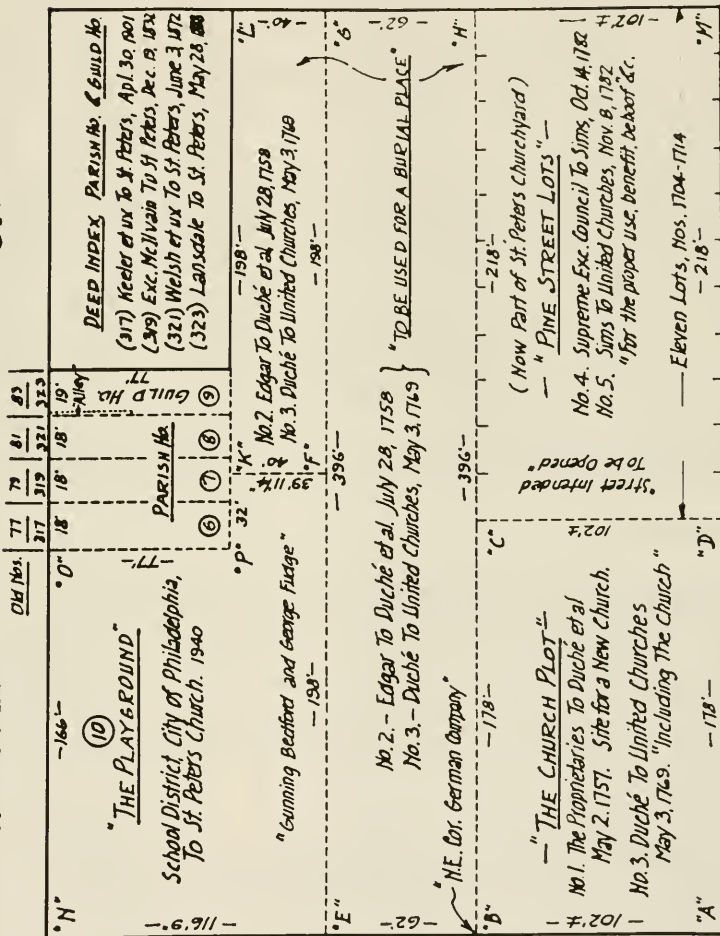 Old Nos.
77
79
81
83
317
319
321
323
"N"
-166'-
"O"
18'
18'
18'
19'
Alley
⑩
"THE PLAYGROUND"
School District, City of Philadelphia,
To St. Peters Church. 1940
-77'-
PARISH HO.
GUILD HO.
77'
⑥
⑦
⑧
⑨
DEED INDEX, PARISH HO. & GUILD HO.
(317) Keeler et ux To St. Peters, Apr. 30, 1901
(319) Exc. McIlvain To St Peters, Dec. 13, 1872
(321) Welsh et ux To St. Peters, June 3, 1872
(323) Lansdale To St. Peters, May 28,
-116.9"-
"P"
32
"K"
-198'-
"L"
39'.11¾"
40'
-40'-
"Gunning Bedford and George Fudge"
-198'-
No.2. Edgar To Duché et al, July 28, 1758
No.3. Duché To United Churches, May 3, 1769
"F"
-198'-
"E"
-396'-
"G"
-62'-
-62'-
No.2. - Edgar To Duché et al. July 28, 1758
No.3. - Duché To United Churches, May 3, 1769
"TO BE USED FOR A BURIAL PLACE"
"N.E. Cor. German Company"
-396'-
"B"
-178'-
"C"
-218'-
"H"
-102'±-
102'±
-102'±-
— "THE CHURCH PLOT" —
No.1. The Proprietaries To Duché et al
May 2. 1757. Site for a New Church.
No.3. Duché To United Churches
May 3, 1769. "Including The Church"
"Street Intended
To be Opened"
(Now Part of St. Peters Churchyard)
— "PINE STREET LOTS" —
No.4. Supreme Exc. Council To Sims, Oct. 14, 1782
No.5. Sims To United Churches, Nov. 8, 1782
"For the proper use, benefit, behoof" &c.
Eleven Lots, Nos. 1704-1714
"A"
-178'-
"D"
-218'-
"M"